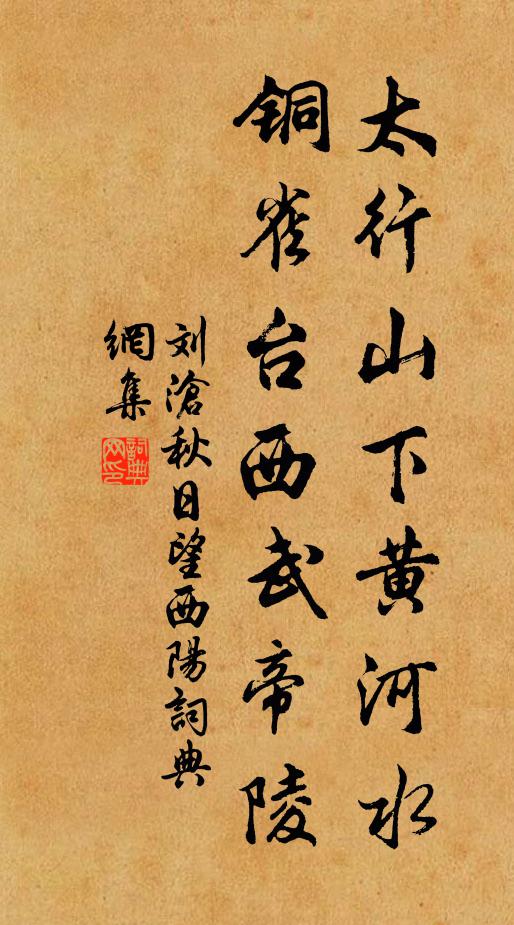 太行山下黄河水
铜雀台西武帝陵
刘滄秋日望西陽詞典
網集
詞典網印